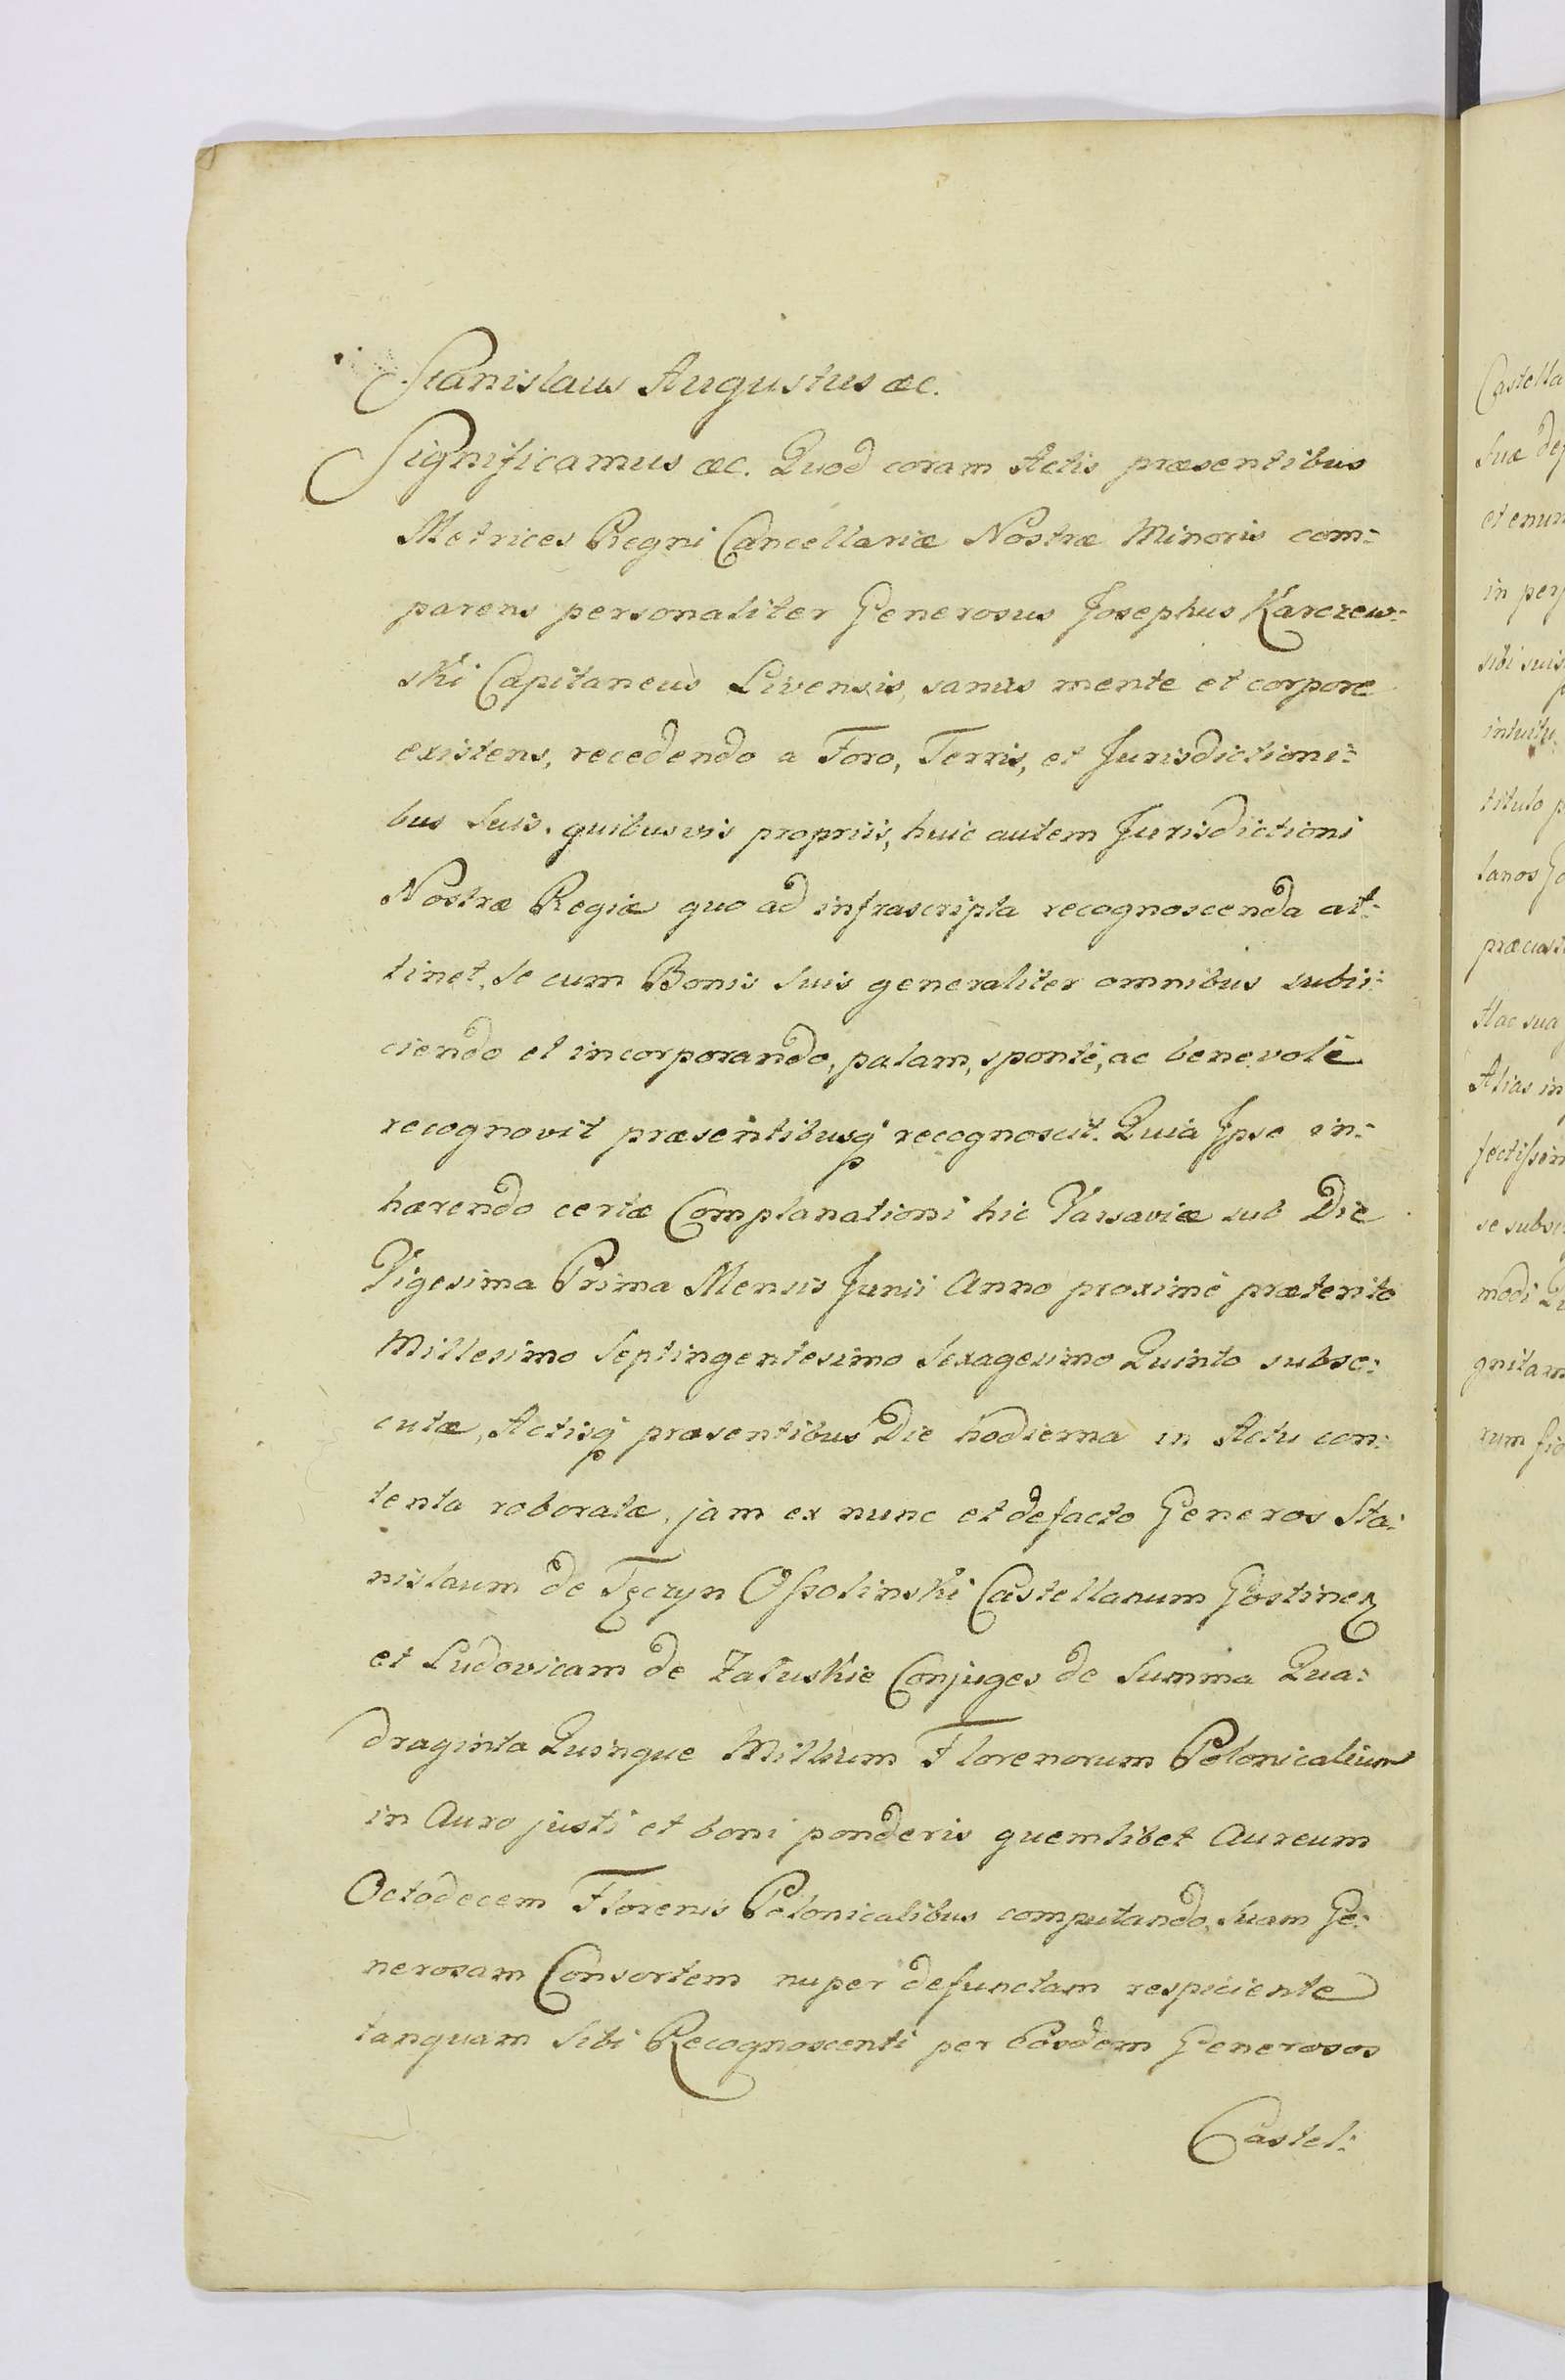 Stanislaus Augustus &c.
Significamus &c. Quod coram Actis præsentibus
Metrices Regni Cancellariæ Nostræ Minoris com=
parens personaliter Generosus Josephus Karczew=
ski Capitaneus Livensis, sanus mente et corpore
existens, recedendo a Foro, Terris, et Jurisdictioni=
bus Suis quibusvis propriis, huic autem Jurisdictioni
Nostræ Regiæ quo ad infrascripta recognoscenda at=
tinet, Se cum Bonis Suis generaliter omnibus subii=
ciendo et incorporando, palam, sponte, ac benevolè
recognovit præsentibusq recognoscit. Quia Ipse in=
hærendo certæ Complanationi hic Varsaviæ sub Die
Vigesima Prima Mensis Junii Anno proximè præterito
Millesimo Septingentesimo Sexagesimo Quinto subse=
cutæ, Actisq præsentibus Die hodierna in Actu con=
tenta roboratæ, jam ex nunc et defacto Generos Sta=
nislaum de Tęczyn Ossolinski Castellanum Gostinen
et Ludovicam de Załuskie Conjuges de Summa Qua=
draginta Quinque Millium Florenorum Polonicalium
in Auro justi et boni ponderis quemlibet Aureum
Octodecem Florenis Polonicalibus computando, Suam Ge=
nerosam Consortem nuper defunctam respiciente
tanquam Sibi Recognoscenti per Eosdem Generosos
Castel=
Castella
Suæ
in
sibi suis
intuitu
titulo
lanos
Hac sua
Alias in
se
modi
gnitam
rum